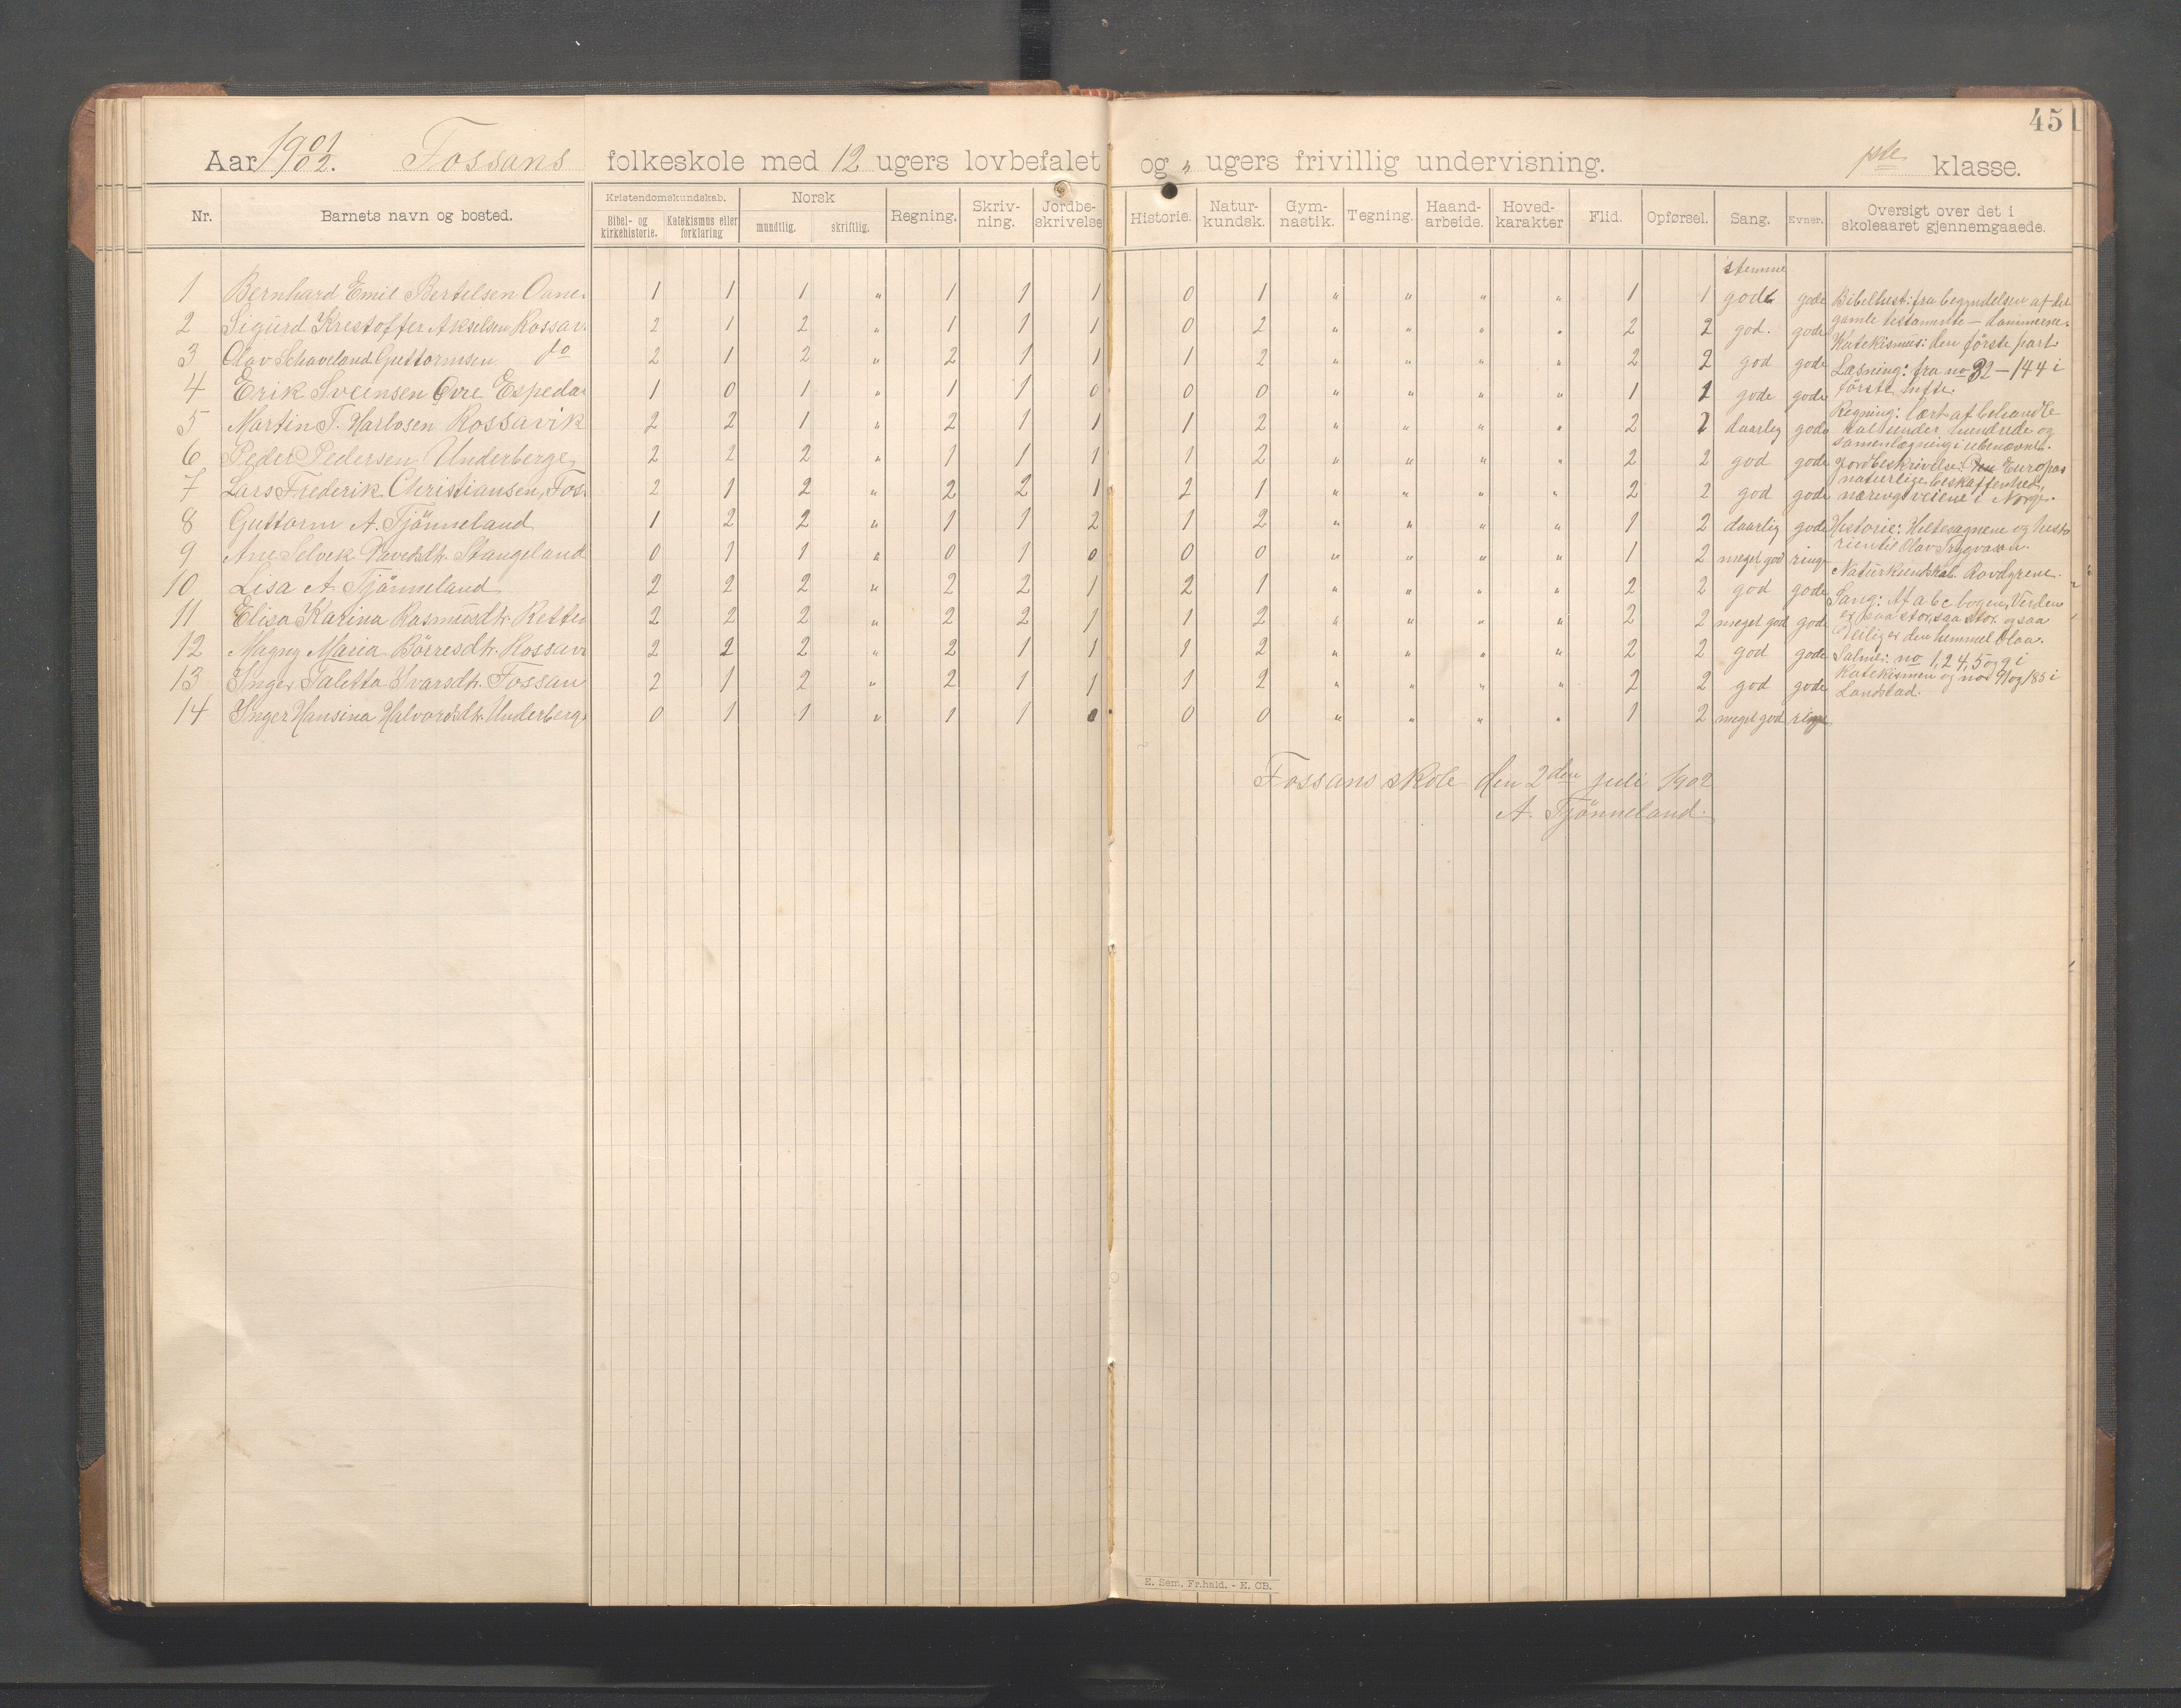 45
Aar 1901/02. Fossans folkeskole med 12 ugers lovbefalet og " ugers frivillig undervisning. 1ste klasse.
Nr. Barnets navn og bosted. Kristendomskundskab. Bibel- og kirkehistorie. Katekismus eller forklaring Norsk mundtlig. skriftlig. Regning. Skriv-ning. Jordbe-skrivelse Historie. Natur-kundsk. Gym-nastik. Tegning. Haand-arbeide. Hoved-karakter Flid. Opførsel. Sang. Evner. Oversigt over det i skoleaaret gjennemgaaede.
stemme
1 Bernhard Emil Bertelsen Oane 1 1 1 " 1 1 1 0 1 " " " " 1 1 god gode
2 Sigurd Krestoffer Akselsen Rossav 2 1 2 " 1 1 1 0 2 " " " " 2 2 god. gode
3 Olav Schaveland Guttormsen do 2 1 2 " 2 1 1 1 2 " " " " 2 2 god gode
4 Erik Sveinsen Øvre Espeda 1 0 1 " 1 1 0 0 0 " " " " 1 1 gode gode
5 Martin T. Harbosen Rossavik 2 2 1 " 2 1 1 1 2 " " " " 2 1 daarlig gode
6 Peder Pedersen Underberge 2 2 2 " 1 1 1 1 2 " " " " 2 2 god gode
7 Lars Frederik Christiansen, Fos 2 1 2 " 2 2 1 2 1 " " " " 2 2 god gode
8 Guttorm A. Tjönneland 1 2 2 " 1 1 2 1 2 " " " " 1 2 daarlig gode
9 Ane Selvik Stangeland 0 1 1 " 0 1 0 0 0 " " " " 1 2 meget god ringe
10 Lisa A. Tjönneland 2 2 2 " 2 2 1 2 1 " " " " 2 2 god gode
11 Elisa Karina Rasmusdtr. 2 2 2 " 2 2 1 1 2 " " " " 2 2 meget god gode
12 Magny Maria Börresdtr. Rossavi 2 2 2 " 2 1 1 1 2 " " " " 2 2 god gode
13 Inger Taletta Ivarsdtr. Fossan 2 1 2 " 2 1 1 1 2 " " " " 2 2 god gode
14 Inger Hansina Halvorsdtr. Underberg 0 1 1 " 1 1 0 0 0 " " " " 1 2 meget god ringe
Bibelhist: fra begyndelsen af det
gamle testamente – dommerne.
Katekismus: den første part
Læsning: fra no 32 – 144 i
første hefte.
Regning: lært at behandle
tal under hundrede og
samenlægning i ubenævnt.
Jordbeskrivelse: Europas
naturlige beskaffenhed,
næringsveiene i Norge.
Historie: Heltesagnene og histo
rien til Olav Trygvason.
Naturkundskab. Rovdyrene.
Sang: Af abc bogen, Verden
er saa stor, saa stor og saa
Deilig er den himmel blaa.
Salmer: no 1, 2 4, 5 og 9 i
Katekismen og no 91 og 185 i
Landstad.
Fossans skole den 2den juli 1902
A. Tjönneland.
E. Sem, Fr.hald. - E. CB.